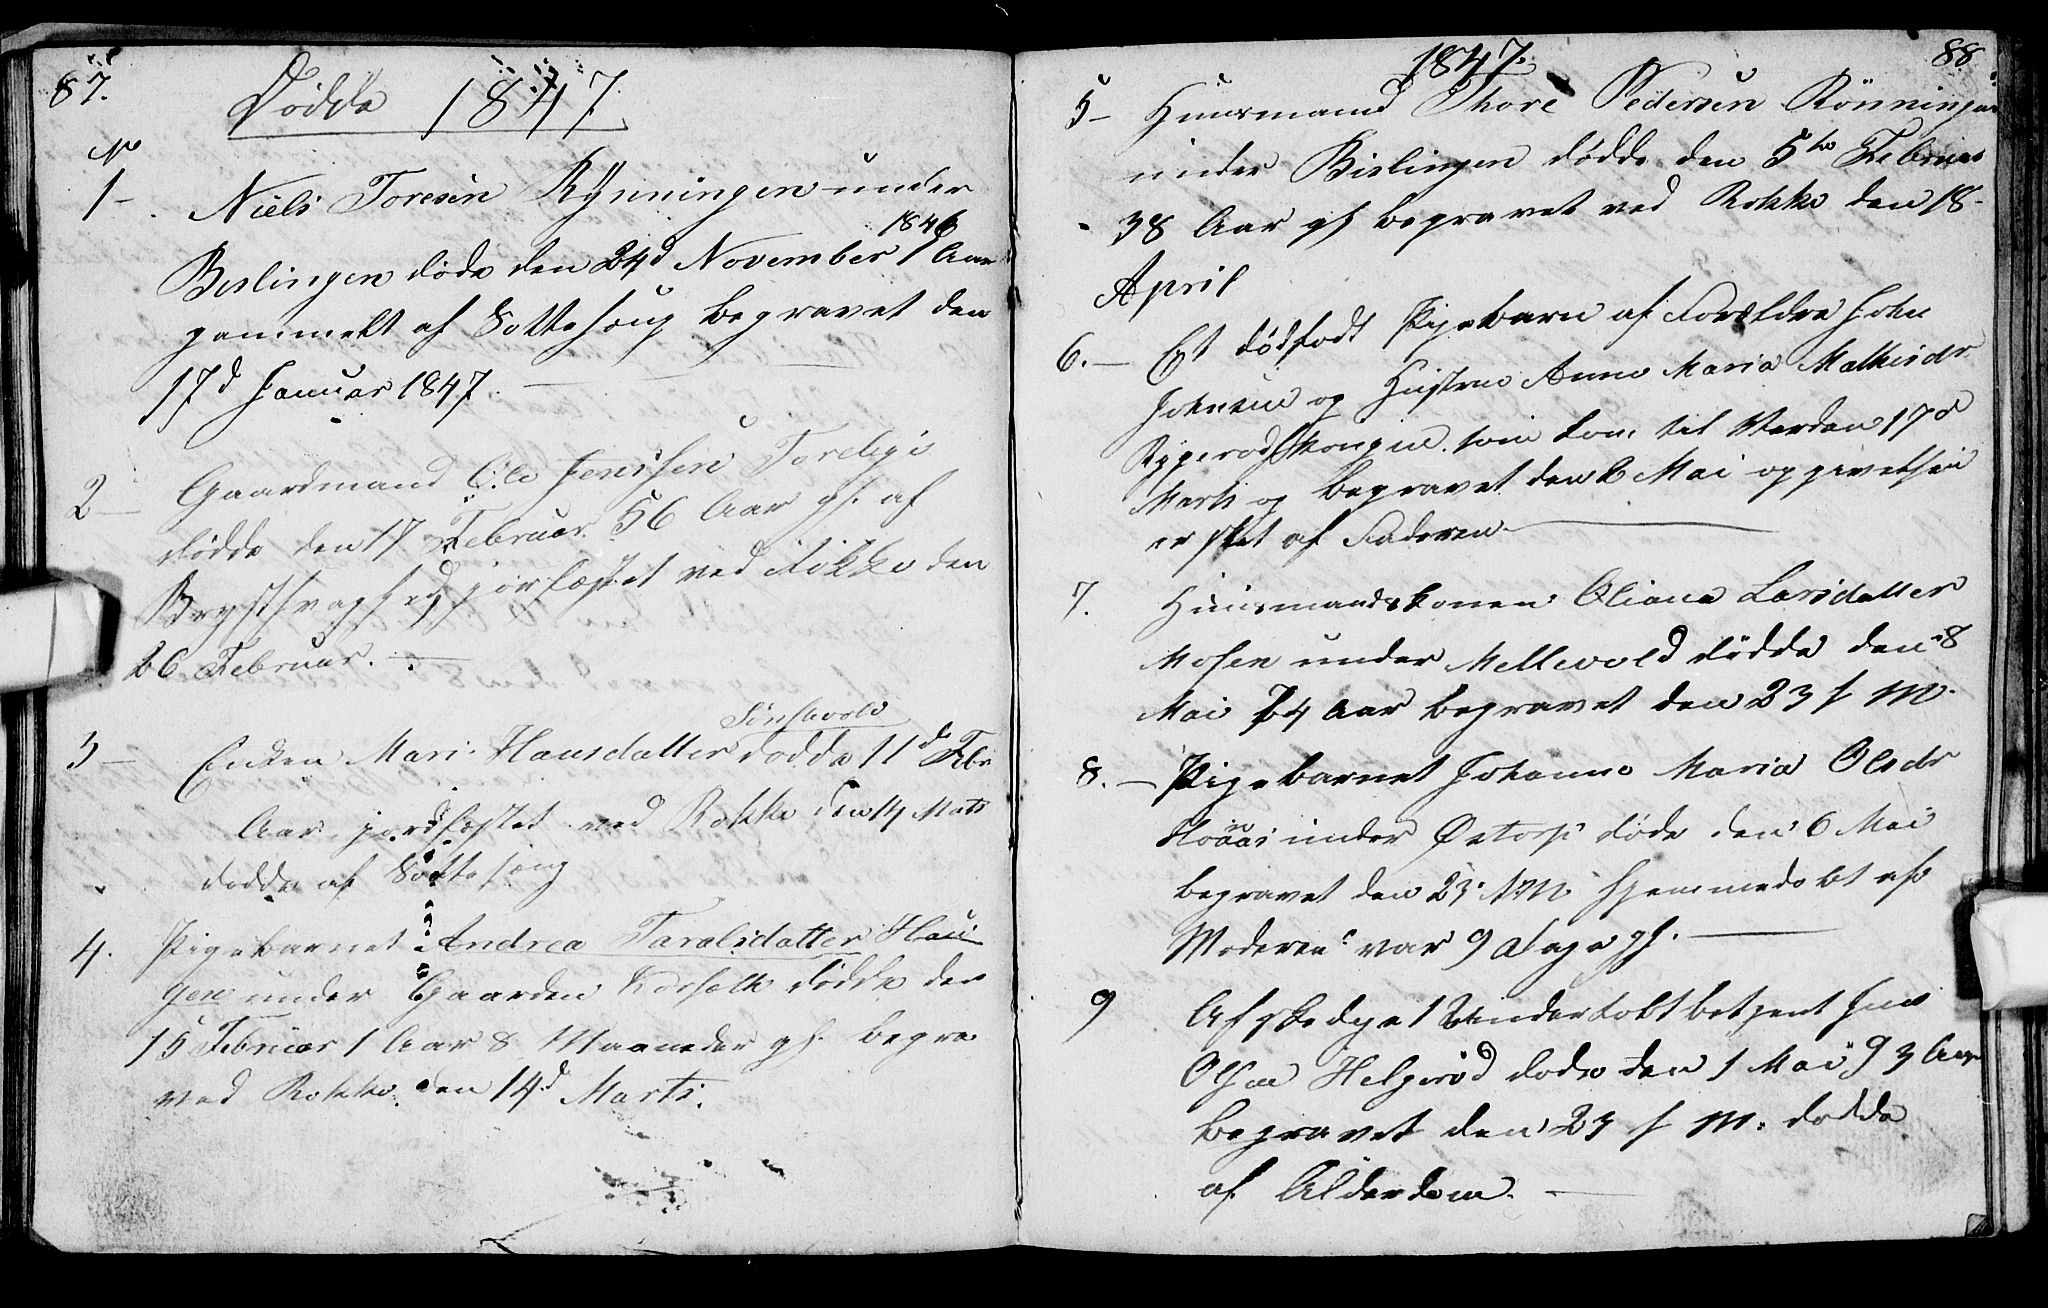 87.
Dødde 1847
No
1 - Niels Toresen Rynningen under
1846
Bislingen døde den 24d November 1 Aar
gammelt af Sotteseng begravet den
17d Januar 1847.
2 - Gaardmand Ole Jenssen Torebye
dødde den 17 Februar 56 Aar gl. af
Brystsvaghed jorfæstet ved Rokke den
26 Februar.
3 - Enken Mari Hansdatter dødde 11d Febr
Aar jordfæstet ved Rokke den 14 Marts
dødde af Sotteseng
4. Pigebarnet Andrea Taralsdatter Hau
gen under Gaarden dødde den
15 Februar 1 Aar 8 Maaneder gl. begra
ved Rokke den 14d Marts.
88
1847.
5 - Huusmand Thore Pedersen Rönningen
under Bislingen dødde den 5te Februar
38 Aar gl begravet ved Rokke den 18-
April
6. - Et dødfødt Pigebarn af Forældre John
Johnsen og Hustrue Anne Maria Mathisdr
som kom til Verden 17d
Marts og begravet den 2 Mai opgivelsen
er sket af Faderen
7. Huusmandskonen Oliana Larsdatter
Mosen under Mellevold dødde den 8
Mai 74 Aar begravet den 23 s M.
8. - Pigebarnet Johanne Maria Olsdr
under Østorp døde den 6 Mai
begravet den 23 s M. hjemmedøbt af
Moderen var 9 Dage gl.
9 Afskediget Underkolbetjent
Olsen Helgerød døde den 1 Mai 93 Aar
begravet den 23 s M. dødde
af Alderdom.